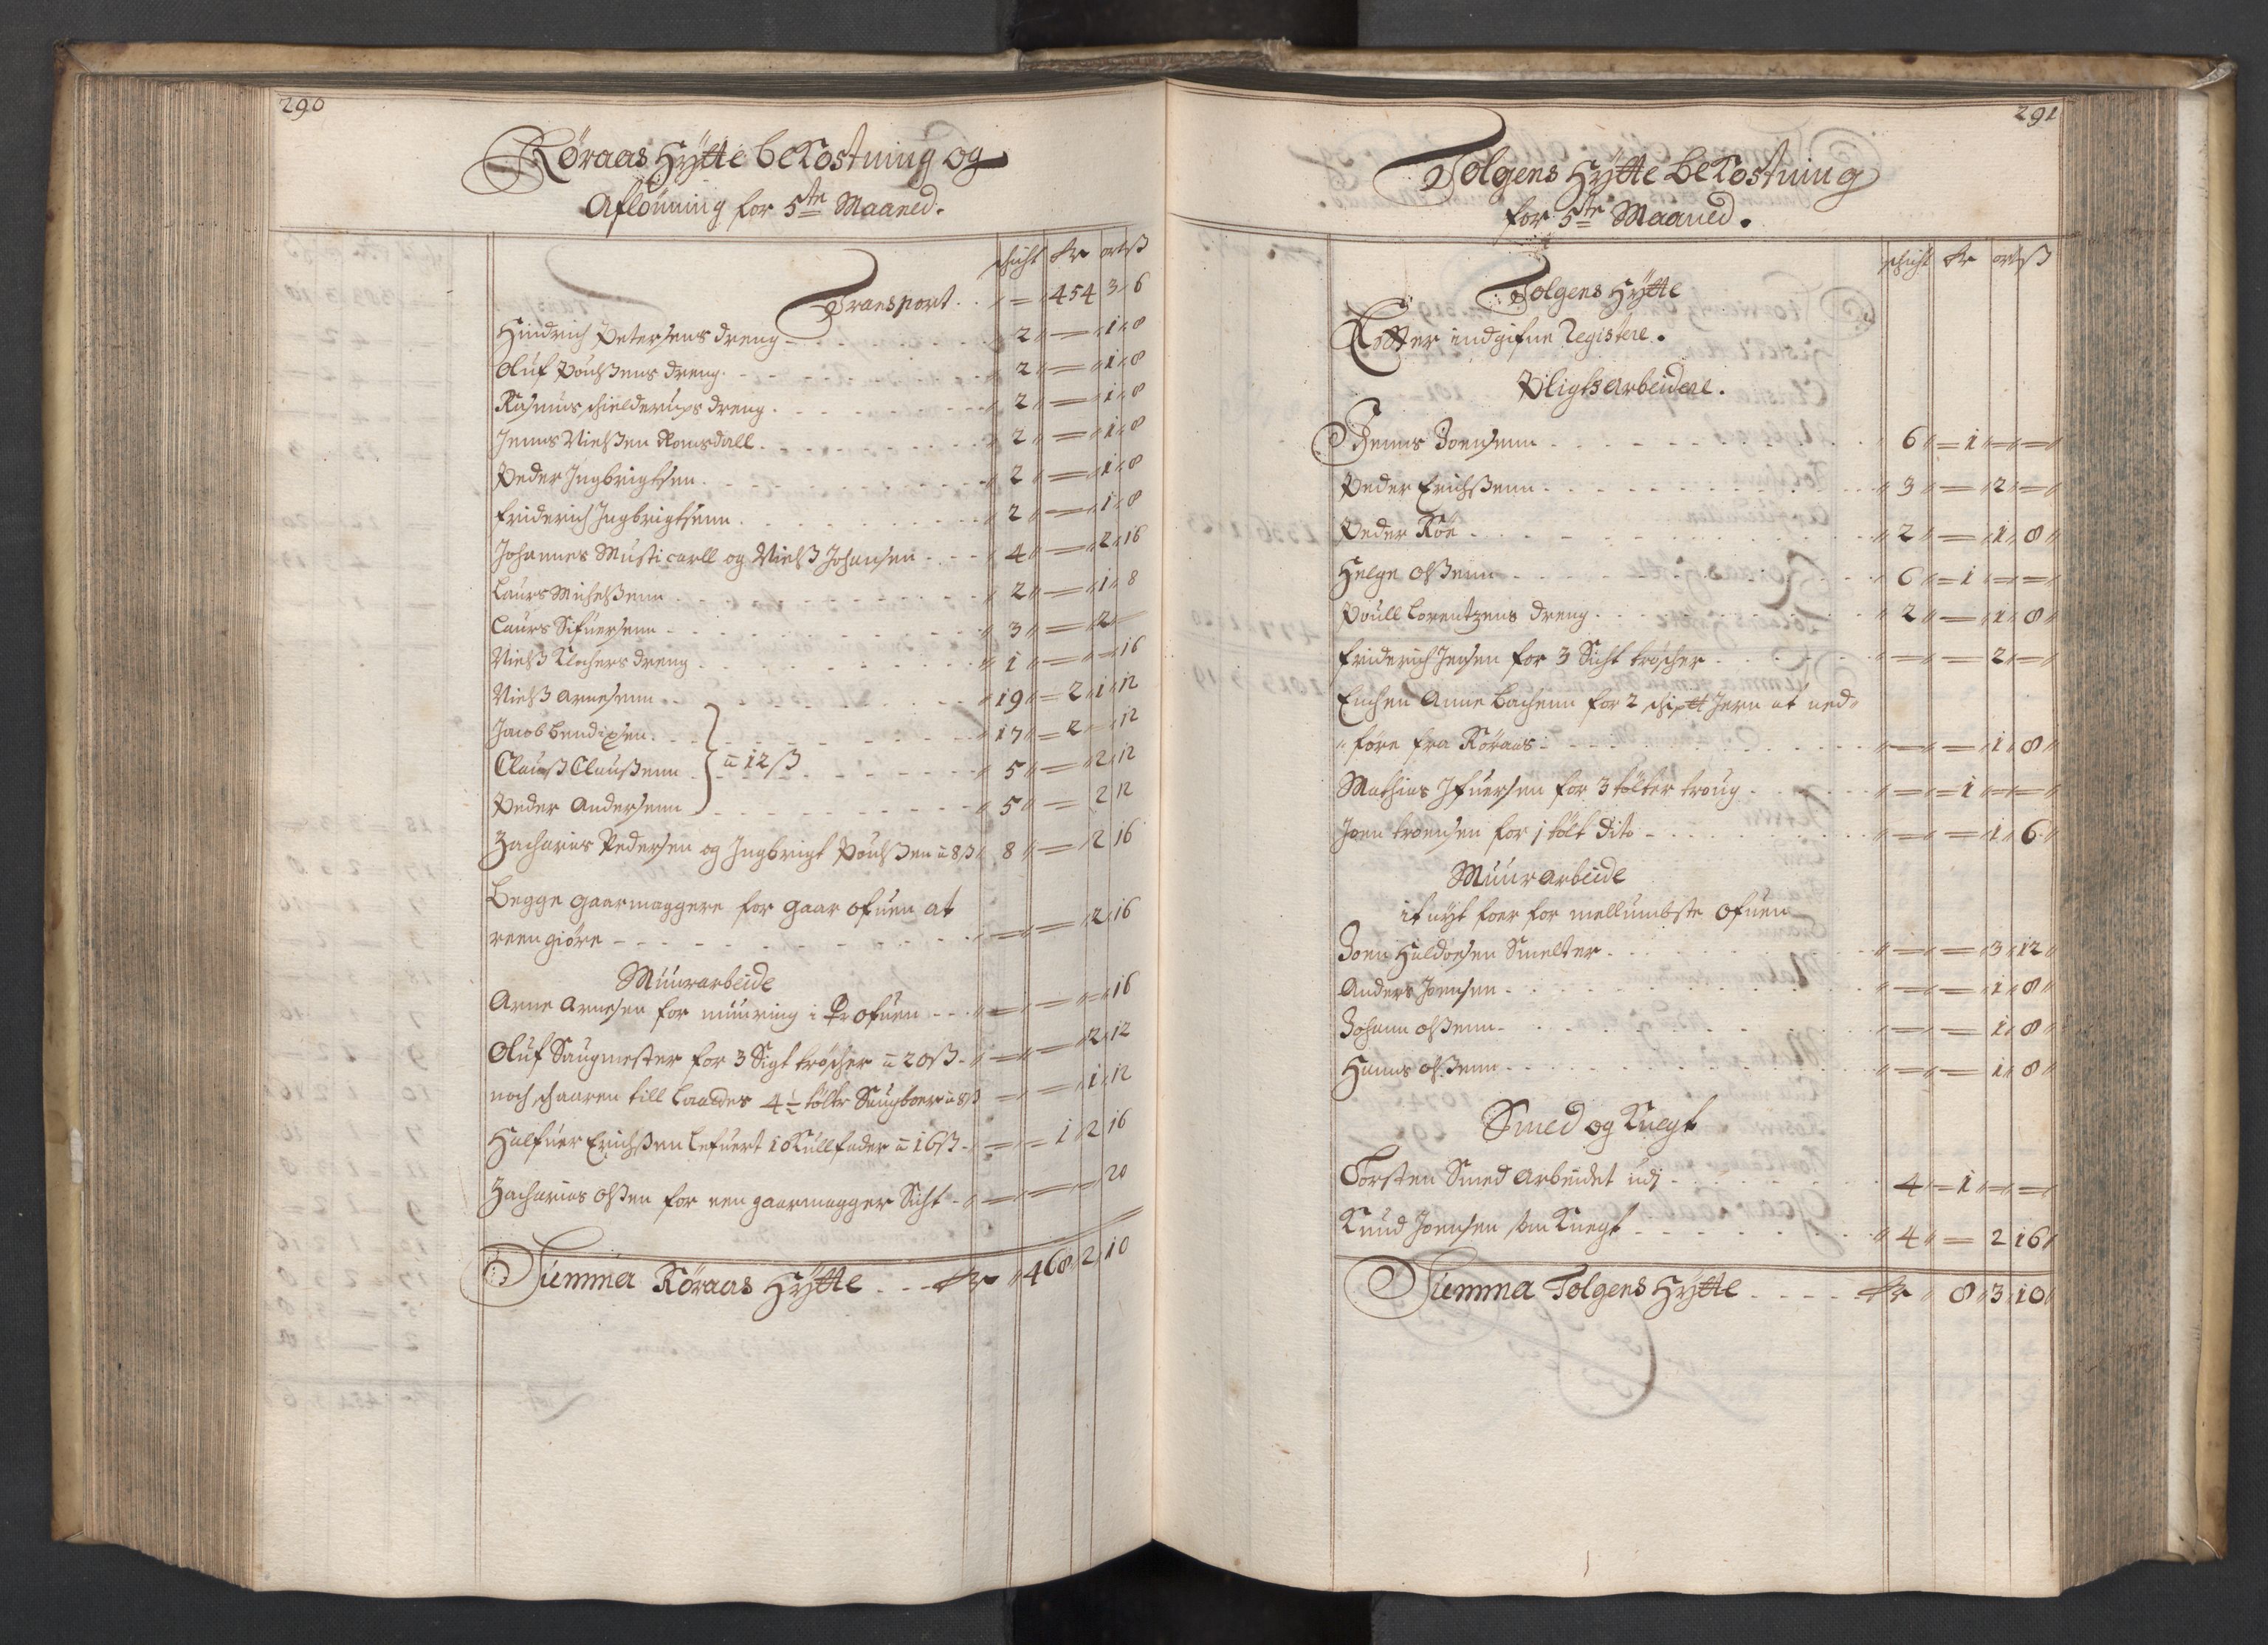 290
Røraas Hÿtte bekostning og
Aflønning for 5te Maaned.
schicht Rr ort ß
Transport . . „ = „ 454 3 „ 6
Hindrich Petersens dreng - - - 2 „ — „ 1 „ 8
Oluf Poulßens dreng - - - 2 „ — „ 1 „ 8
Rasmus schielderups dreng - - - 2 „ — „ 1 „ 8
Jenns Nielßen Romsdall - - - 2 „ — „ 1 „ 8
Peder Ingbrigtsen - - - 2 „ — „ 1 „ 8
Friderich Ingbrigtsenn - - - 2 „ — „ 1 „ 8
Johannes Musticarll og Nielß Johansen - - - 4 „ — „ 2 „ 16
Laurs Michelßenn - - - 2 „ — „ 1 „ 8
Laurs Sifuersenn - - - 3 „ — „ 2 —
Nielß Klochers dreng - - - 1 „ — „ — „ 16
Nielß Arnesenn - - - 19 „ = 2 „ 1 „ 12
Jacob Bendixsen - - - 17 „ = 2 — „ 12
Clauß Claußenn } a 12 ß - - - 5 „ — „ 2 „ 12
Peder Andersenn - - - 5 „ — 2 12
Zacharias Pedersen og Ingbrigt Poulßen a 8 ß 8 „ — „ 2 16
Begge gaarmaggere for gaar ofuen at
reengiøre - - - „ — „ — „ 2 „ 16
Muurarbeide
Arne Arnesen for muuring i Pr ofuen - - - „ — „ — „ — „ 16
Oluf Saugmester for 3 Sigt trøscher a 20 ß - „ — „ — „ 2 „ 12
noch schaaren till Laaddes 4 ½ tølter Saugboer a 8 ß — „ — „ 1 „ 12
Halfuer Erichßen lefuert 10 Kullfader a 16 ß - „ — „ 1 „ 2 16
Zacharias Olßen for een gaarmagger Sicht - „ — „ — „ — 20
Summa Røraas Hÿtte - - - Rr „ 468 „ 2 „ 10
291
Tolgens Hÿtte bekostning
for 5te Maaned.
schicht Rr ort ß
Tolgens Hÿtte
Efter indgifne Registere.
Pligtsarbeidere.
Jenns Joensenn - - - „ 6 „ = 1 „ — „ — „
Peder Erichßenn - - - „ 3 „ — „ 2 „ — „
Peder Røe - - - „ 2 „ — „ 1 „ 8 „
Helge Olßenn - - - „ 6 „ = 1 „ — „ — „
Poull Lorentzens dreng - - - „ 2 „ — „ 1 „ 8 „
Friderich Jensen for 3 Sicht trøscher - - - „ — „ — 2 „ — „
Enchen Anne Bachenn for 2 schiptt Jern at ned„
„føre fra Røraas - - - „ — „ — „ 1 „ 8 „
Mathias Ifuersen for 3 tølter troug - - - „ — „ = 1 „ — „ — „
Joen troensen for 1 tølt dito - - - „ — „ — „ 1 „ 6 „
Muurarbeide
it nÿt foer for mellumbste ofuen
Joen Haldoesen Smelter - - - „ — „ — „ 3 „ 12 „
Anders Joensen - - - „ — „ — „ 1 „ 8 „
Johann Olßenn - - - „ — „ — 1 „ 8 „
Hanns Olßenn - - - „ — „ — 1 „ 8 „
Smed og Knegt
Torsten Smed Arbeidet udj - - - 4 „ = 1 „ — „ — „
Knud Joensen som Knegt - - - „ 4 „ — 2 16 „
Summa Tolgens Hÿtte - - - Rr „ 8 „ 3 „ 10 „